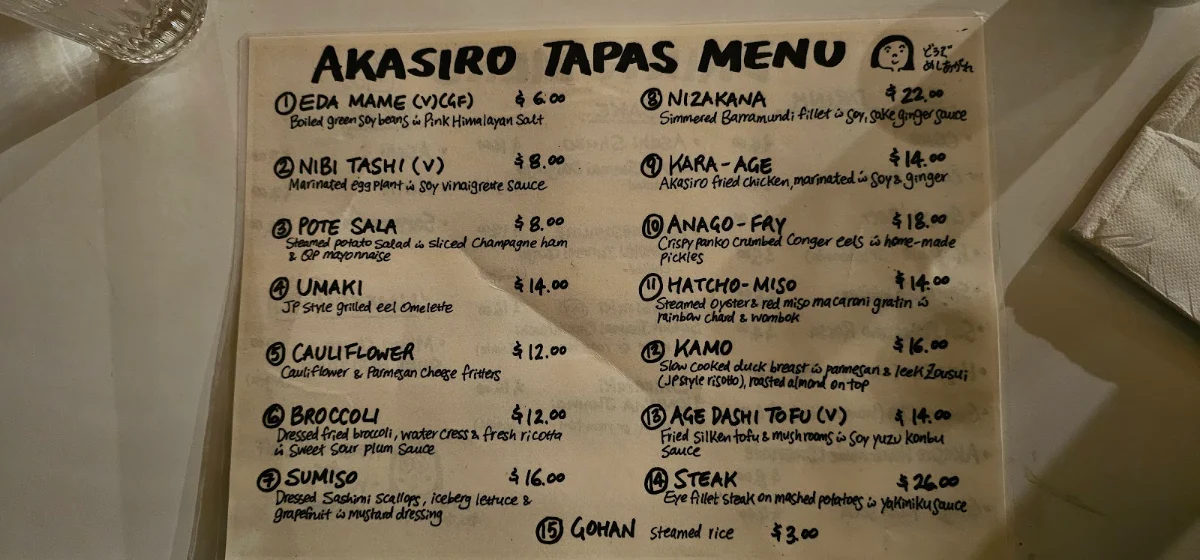 AKASIRO TAPAS MENU
どうぞ
めしあがれ
① EDA MAME (V)(GF) $6.00
Boiled green soy beans w Pink Himalayan Salt
② NIBI TASHI (V) $8.00
Marinated egg plant w soy vinaigrette sauce
③ POTE SALA $8.00
Steamed potato salad w sliced Champagne ham
& QP mayonnaise
④ UMAKI $14.00
JP style grilled eel omelette
⑤ CAULIFLOWER $12.00
Cauliflower & Parmesan cheese fritters
⑥ BROCCOLI $12.00
Dressed fried broccoli, water cress & fresh ricotta
w sweet sour plum sauce
⑦ SUMISO $16.00
Dressed Sashimi Scallops, iceberg lettuce &
grapefruit w mustard dressing
⑧ NIZAKANA $22.00
Simmered Barramundi fillet w soy, sake ginger sauce
⑨ KARA-AGE $14.00
Akasiro fried chicken, marinated w soy & ginger
⑩ ANAGO-FRY $18.00
Crispy panko crumbed Conger eels w home-made
pickles
⑪ HATCHO-MISO $14.00
Steamed oyster & red miso macaroni gratin w
rainbow chard & wombok
⑫ KAMO $16.00
Slow cooked duck breast w parmesan & leek Zousui
(JP style risotto), roasted almond on top
⑬ AGE DASHI TOFU (V) $14.00
Fried silken tofu & mushrooms w soy yuzu konbu
sauce
⑭ STEAK $26.00
Eye fillet steak on mashed potatoes w yakiniku sauce
⑮ GOHAN steamed rice $3.00